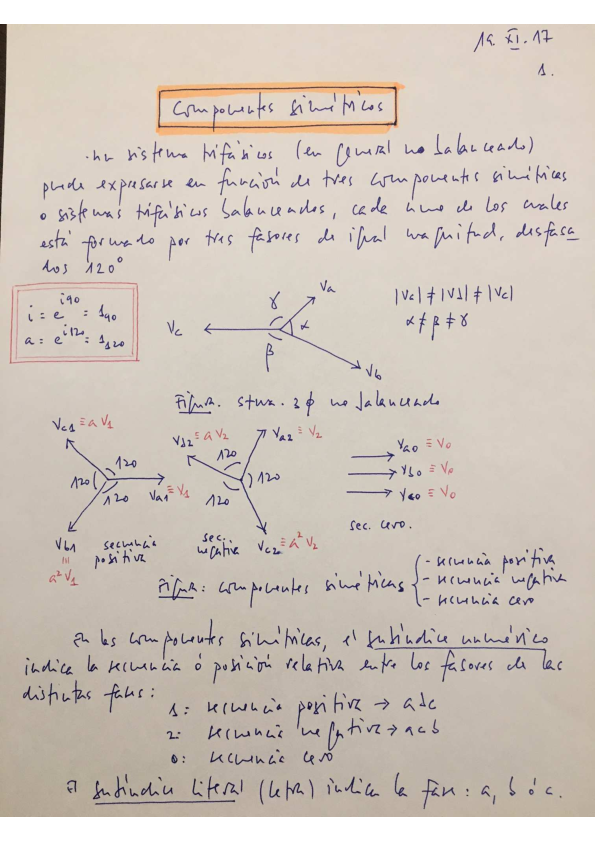 19. XI. 17
1.
Componentes simétricos
Un sistema trifásicos (en general no balanceado)
puede expresarse en función de tres componentes simétricas
o sistemas trifásicos balanceados, cada uno de los cuales
está formado por tres fasores de igual magnitud, desfasa
dos 120°
i = e^{i90} = 1_{90}
a = e^{i120} = 1_{120}
Va
γ
Vc
α
β
Vb
|Vc| ≠ |Vb| ≠ |Vc|
α ≠ β ≠ γ
Figura. stma. 3φ no balanceado
Vc1 ≡ a V1
120
120
120
Va1 ≡ V1
Vb1
≡
a² V1
secuencia
positiva
Vb2 ≡ a V2
Va2 ≡ V2
120
120
120
sec.
negativa
Vc2 ≡ a² V2
Va0 ≡ V0
Vb0 ≡ V0
Vc0 ≡ V0
sec. cero.
Figura: componentes simétricas
- secuencia positiva
- secuencia negativa
- secuencia cero
En las componentes simétricas, el subíndice numérico
indica la secuencia ó posición relativa entre los fasores de las
distintas fases:
1: secuencia positiva → abc
2: secuencia negativa → acb
0: secuencia cero
El subíndice literal (letra) indica la fase: a, b ó c.